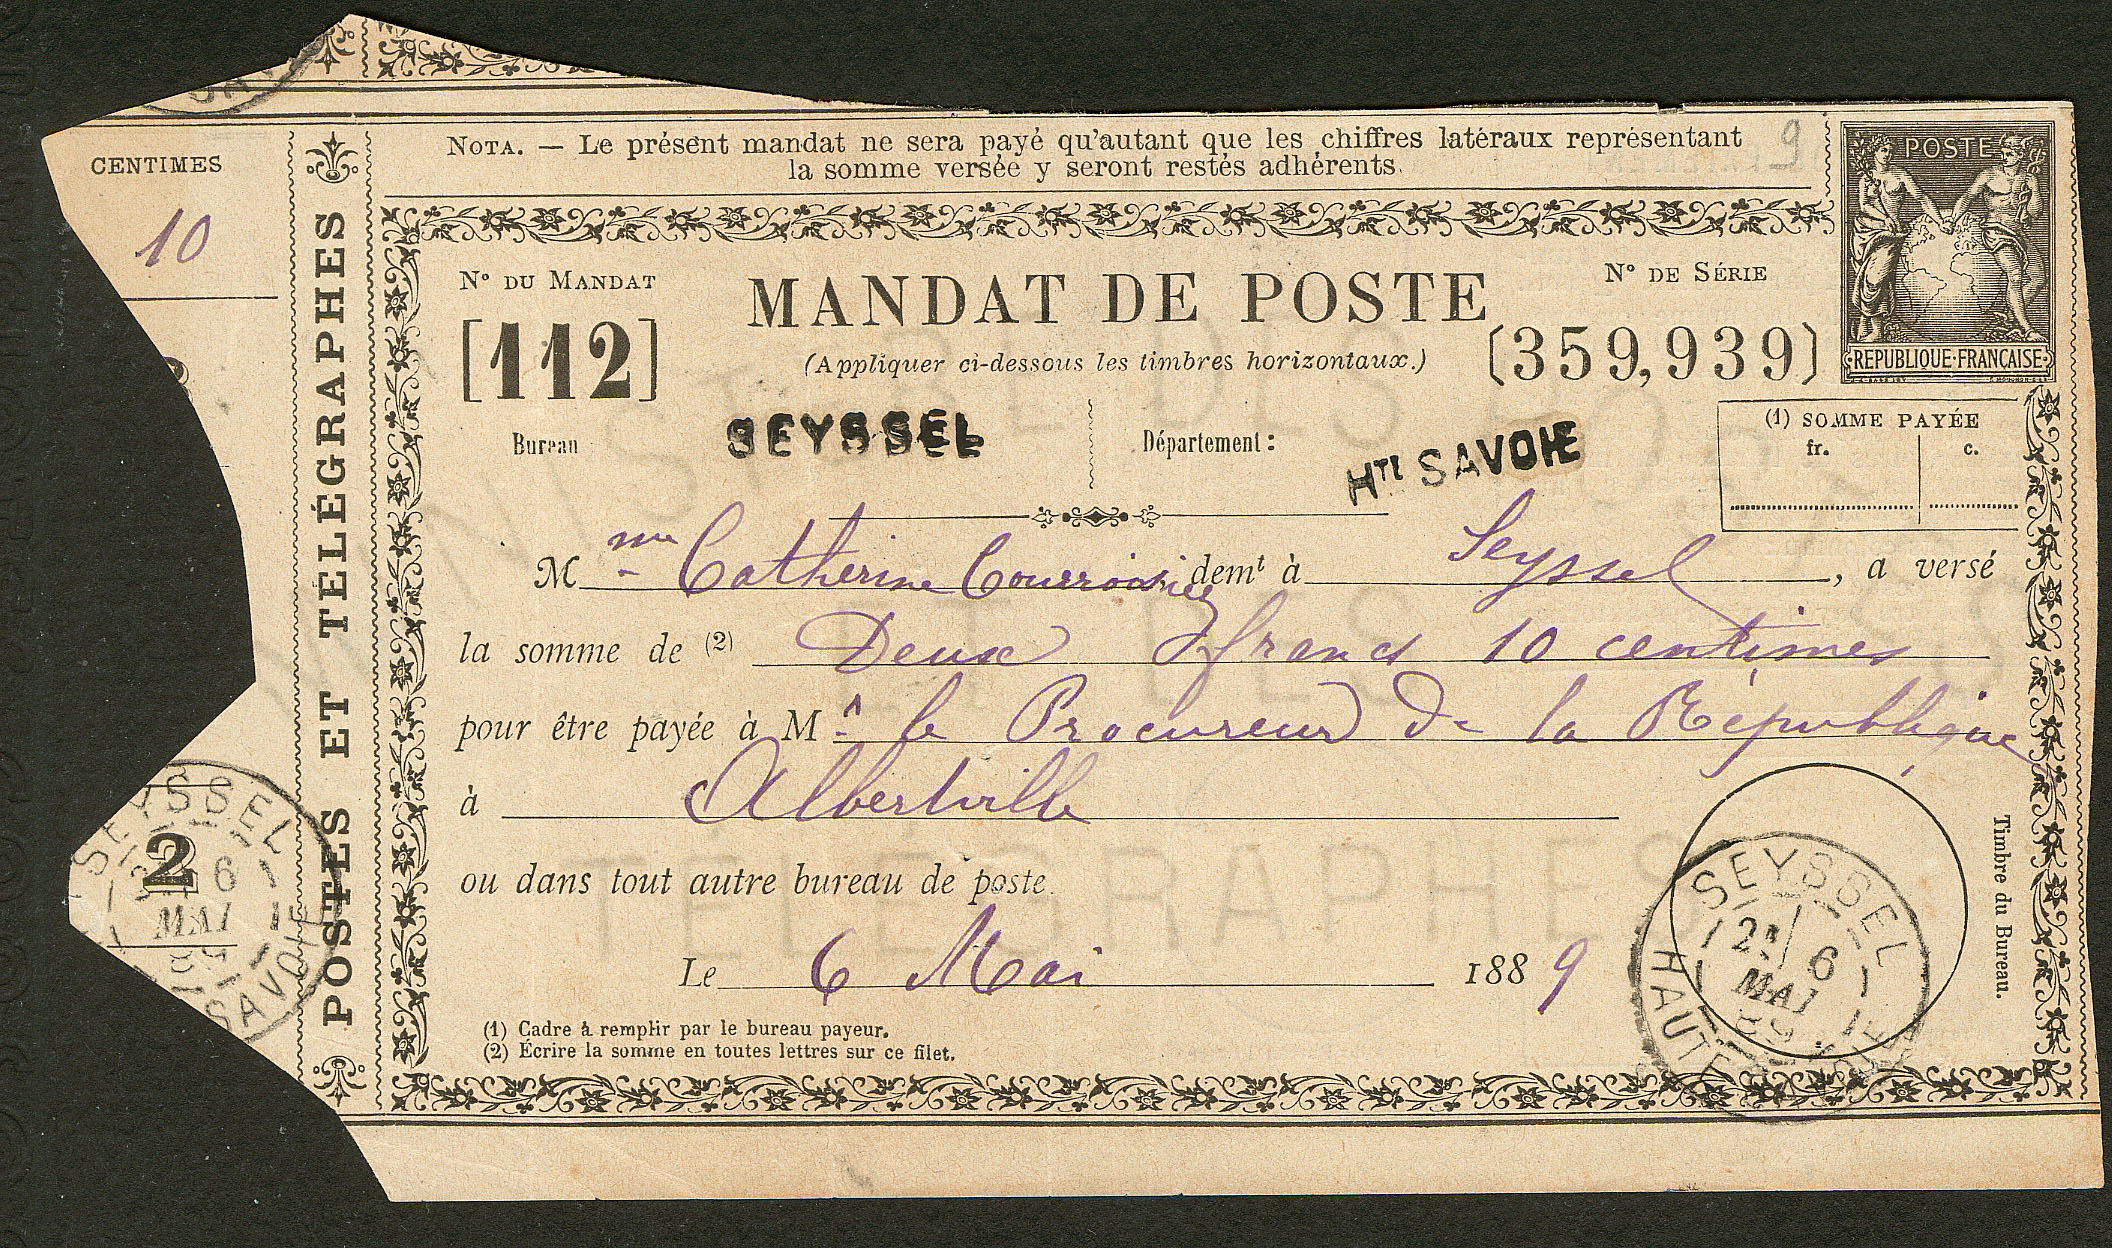 CENTIMES
10
2
POSTES ET TÉLÉGRAPHES
NOTA. — Le présent mandat ne sera payé qu'autant que les chiffres latéraux représentant
la somme versée y seront restés adhérents.
9
POSTE
REPUBLIQUE·FRANÇAISE
N° DU MANDAT
[112]
MANDAT DE POSTE
(Appliquer ci-dessous les timbres horizontaux.)
N° DE SÉRIE
(359,939)
Bureau
SEYSSEL
Département:
HTE SAVOIE
(1) SOMME PAYÉE
fr. c.
Mme Catherine demt à Seyssel, a versé
la somme de (2) Deux francs 10 centimes
pour être payée à Mr le Procureur de la République
à Albertville
ou dans tout autre bureau de poste.
Le 6 Mai 1889
(1) Cadre à remplir par le bureau payeur.
(2) Écrire la somme en toutes lettres sur ce filet.
Timbre du Bureau.
SEYSSEL
6
MAI
89
SAVOIE
SEYSSEL
2E 6
MAI
89
HAUTE SAVOIE
MINISTÈRE DES POSTES
ET DES
TELEGRAPHES